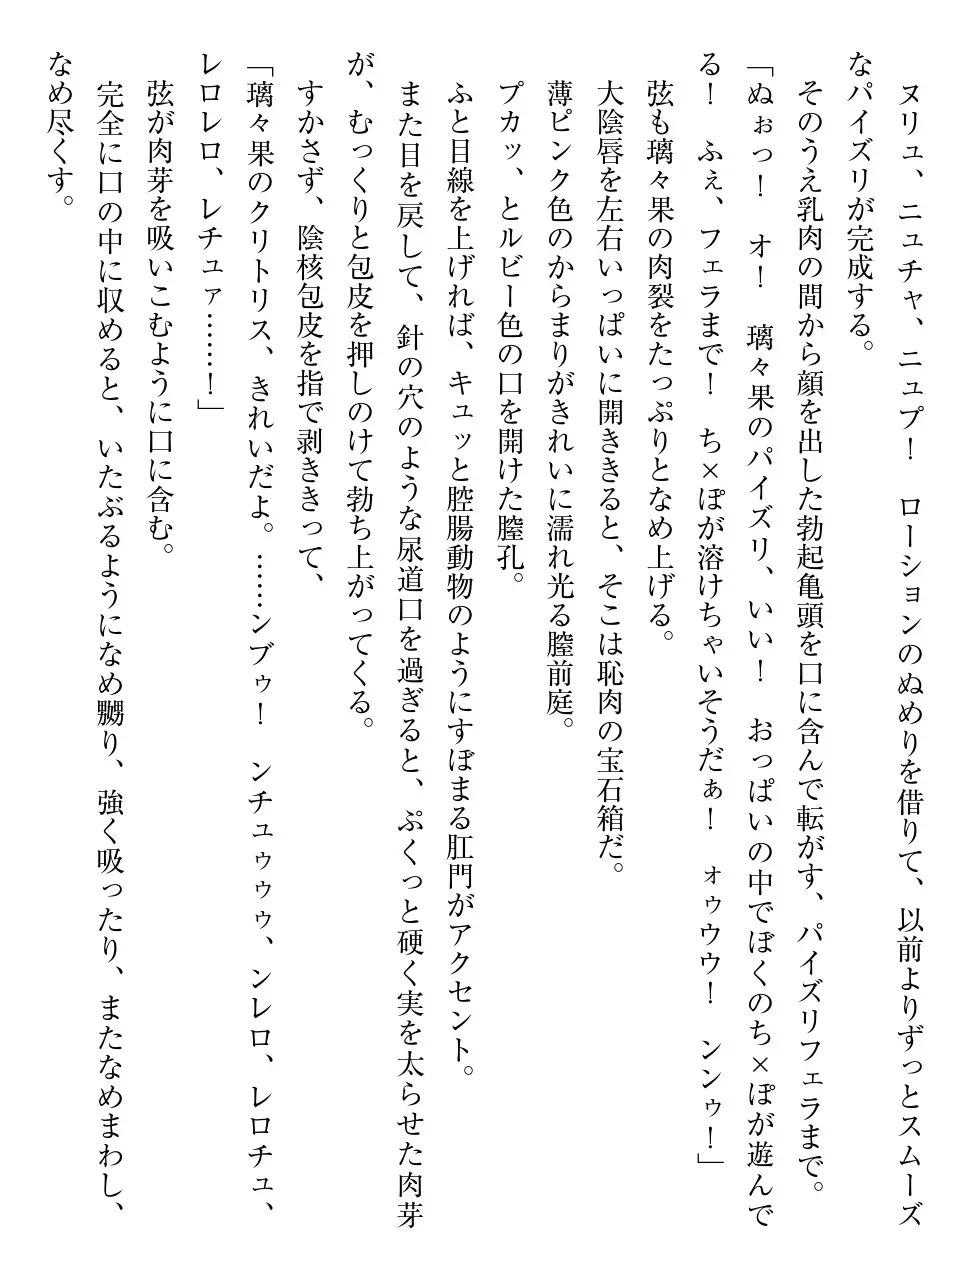 ヌリュ、ニュチャ、ニュプ！　ローションのぬめりを借りて、以前よりずっとスムーズ
なパイズリが完成する。
そのうえ乳肉の間から顔を出した勃起亀頭を口に含んで転がす、パイズリフェラまで。
「ぬぉっ！　オ！　璃々果のパイズリ、いい！　おっぱいの中でぼくのち×ぽが遊んで
る！　ふぇ、フェラまで！　ち×ぽが溶けちゃいそうだぁ！　ォゥウウ！　ンンゥ！」
弦も璃々果の肉裂をたっぷりとなめ上げる。
大陰唇を左右いっぱいに開ききると、そこは恥肉の宝石箱だ。
薄ピンク色のからまりがきれいに濡れ光る膣前庭。
プカッ、とルビー色の口を開けた膣孔。
ふと目線を上げれば、キュッと腔腸動物のようにすぼまる肛門がアクセント。
また目を戻して、針の穴のような尿道口を過ぎると、ぷくっと硬く実を太らせた肉芽
が、むっくりと包皮を押しのけて勃ち上がってくる。
すかさず、陰核包皮を指で剥ききって、
「璃々果のクリトリス、きれいだよ。……ンブゥ！　ンチュゥゥゥ、ンレロ、レロチュ、
レロレロ、レチュァ……！」
弦が肉芽を吸いこむように口に含む。
完全に口の中に収めると、いたぶるようになめ嬲り、強く吸ったり、またなめまわし、
なめ尽くす。